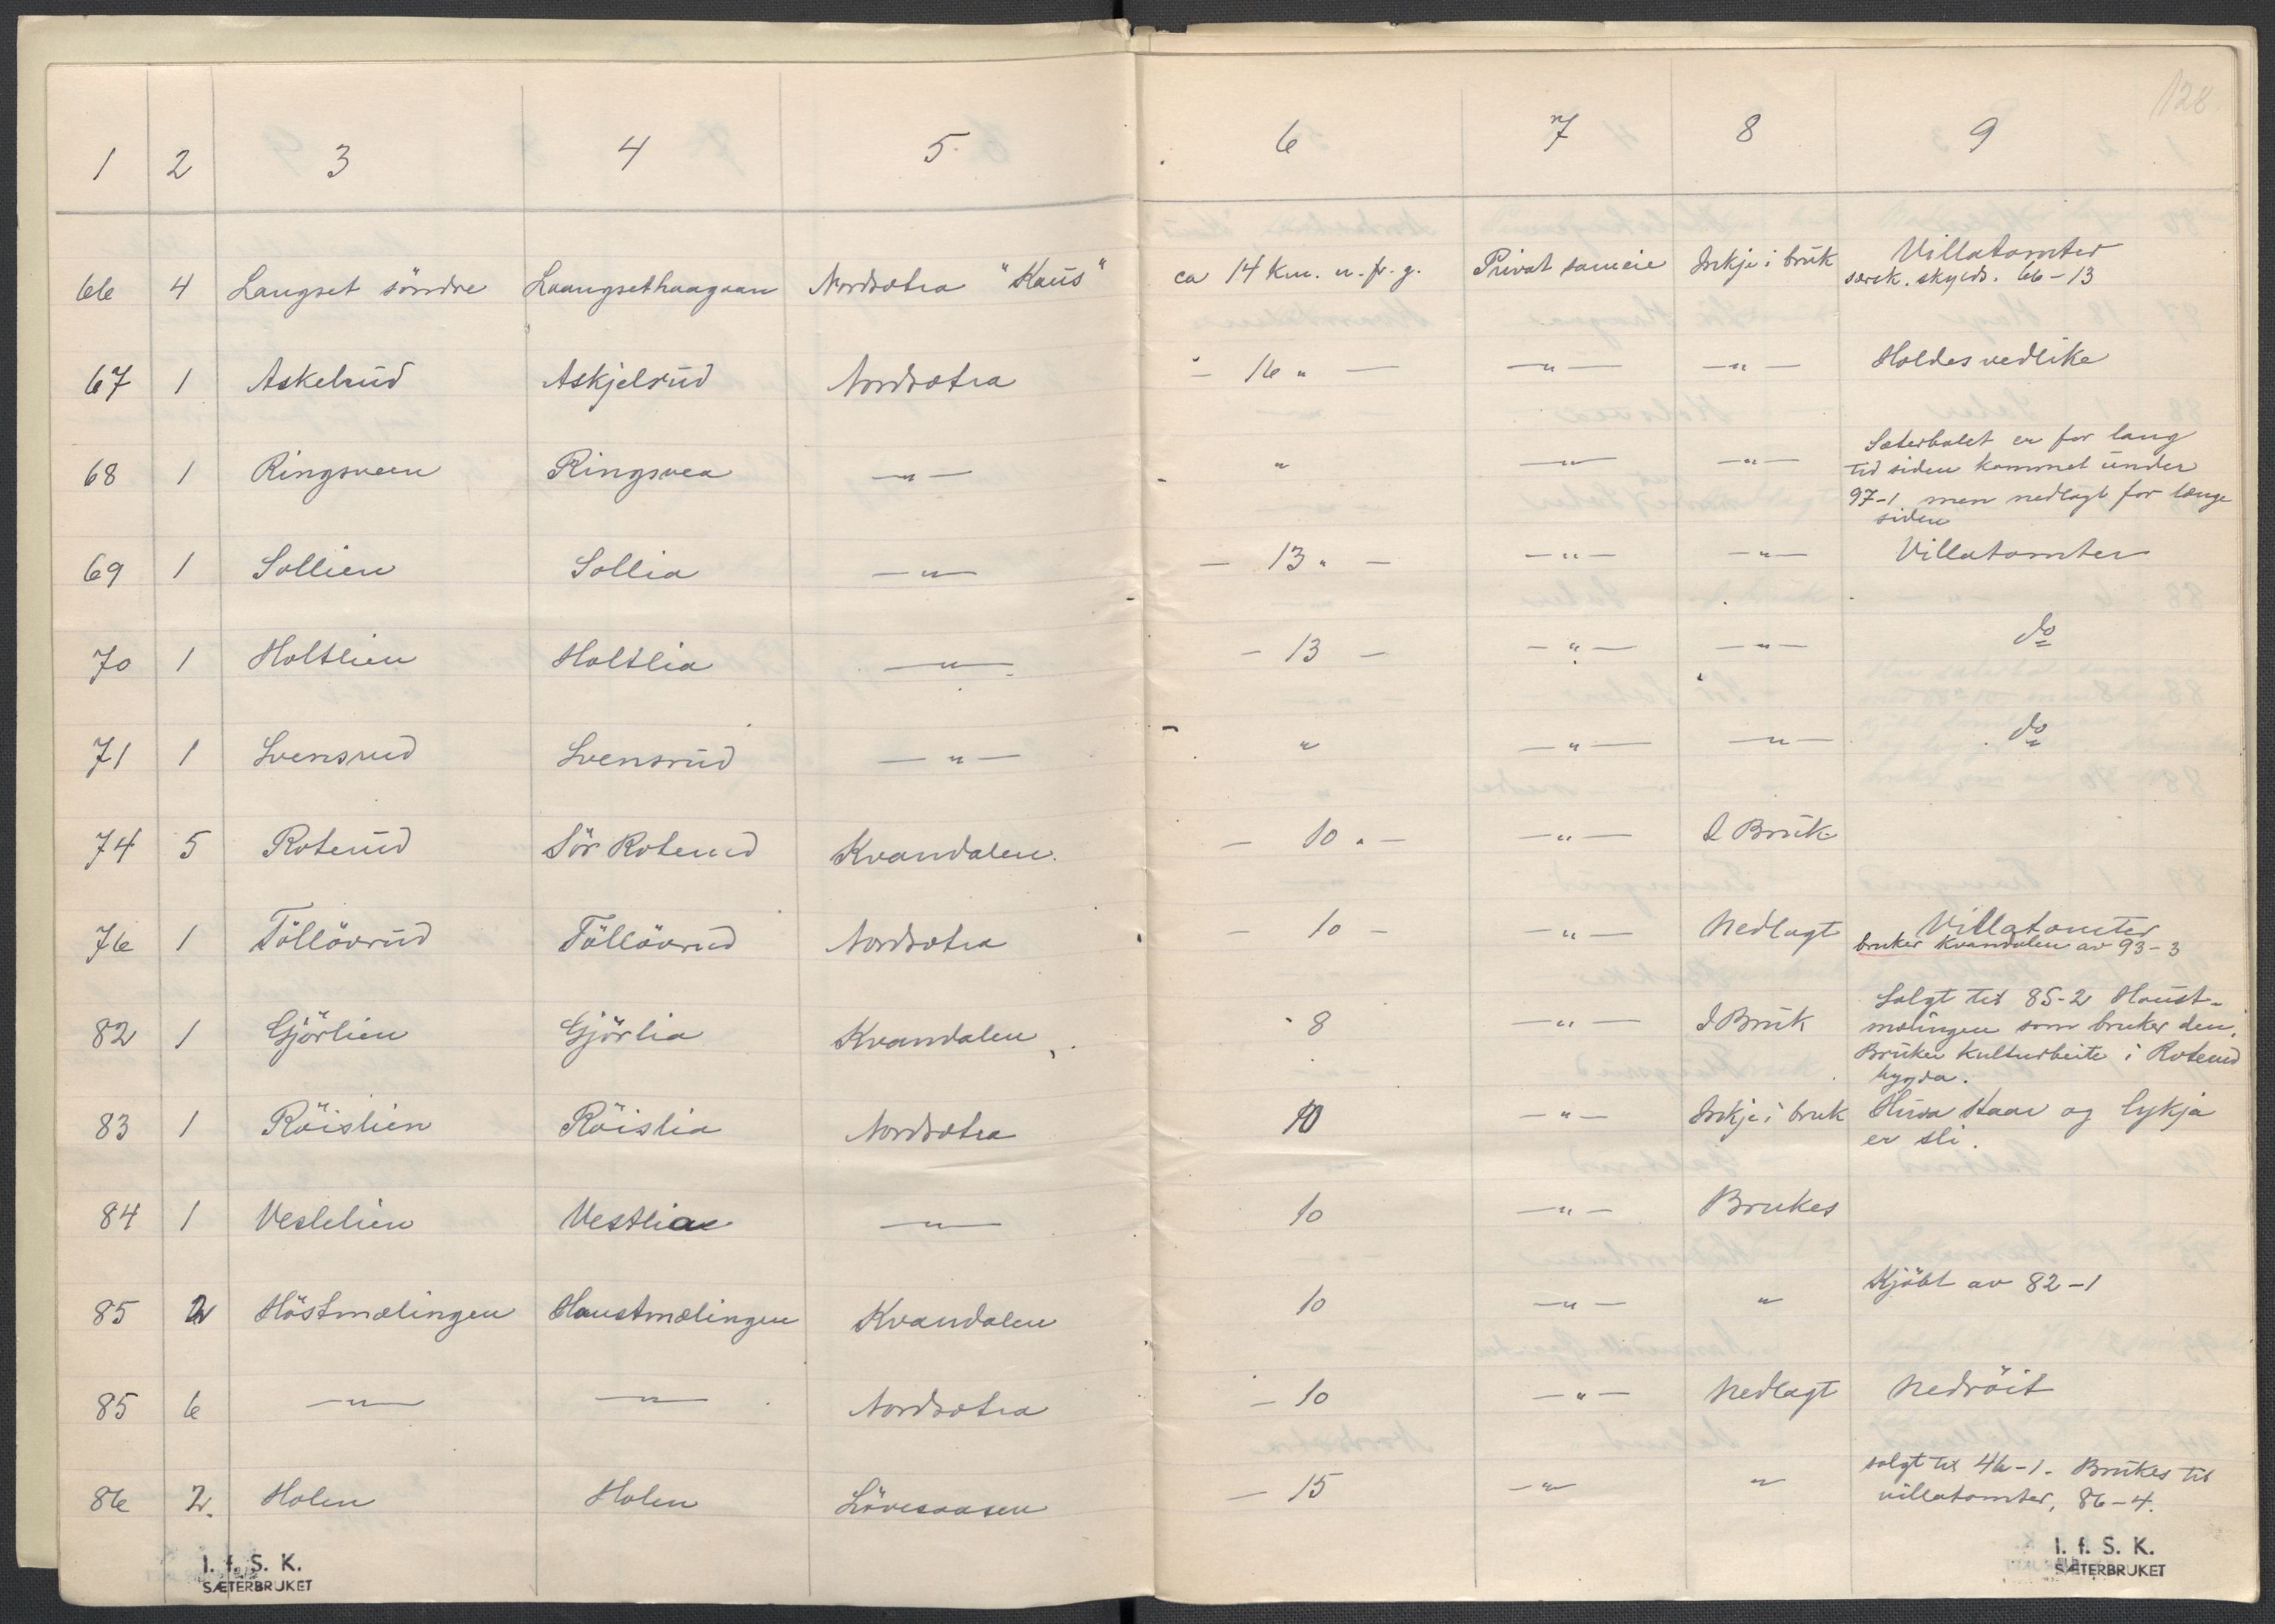 128
1 2 3 4 5 6 7 8 9
66 4 Langset söndre Laangsethaagaan Nordsetra "Kaus" ca 14 km. n. fr. g. Privat sameie Inkje i bruk Villatomter
særsk. skyld. 66-13
67 1 Askelrud Askjelrud Nordsetra - 16 " - - " - - " - Holdes vedlike
68 1 Ringsveen Ringsvea - " - - " - " - - " - Sæterbolet er for lang
tid siden kommet under
97-1 men nedlagt for længe
siden
69 1 Sollien Sollia - " - - 13 " - - " - - " - Villatomter
70 1 Holtlien Holtlia - " - - 13 - - " - - " - do
71 1 Svensrud Svensrud - " - - " - " - - " - do
74 5 Roterud Sör Roterud Kvandalen. - 10 " - - " - I Bruk
76 1 Töllövrud Töllövrud Nordsetra - 10 - - " - Nedlagt Villatomter
bruker Kvandalen av 93-3
82 1 Gjörlien Gjörlia Kvandalen - 8 - " - I Bruk Solgt til 85-2 Haust-
mælingen som bruker den.
Bruker kulturbeite i Roterud
bygda.
83 1 Röislien Röislia Nordsetra 10 - " - Inkje i bruk Husa staar og lykja
er sli.
84 1 Veslelien Vestlia - " - 10 - " - Brukes
85 2 Höstmælingen Haustmælingen Kvandalen 10 - " - " Kjöbt av 82-1
85 6 - " - - " - Nordsetra - 10 - " - Nedlagt Nedröit
86 2. Holen Holen Lövesaasen - 15 - " " solgt til 46-1. Brukes til
villatomter, 86-4.
I. f. S. K.
SÆTERBRUKET
I. f. S. K.
SÆTERBRUKET